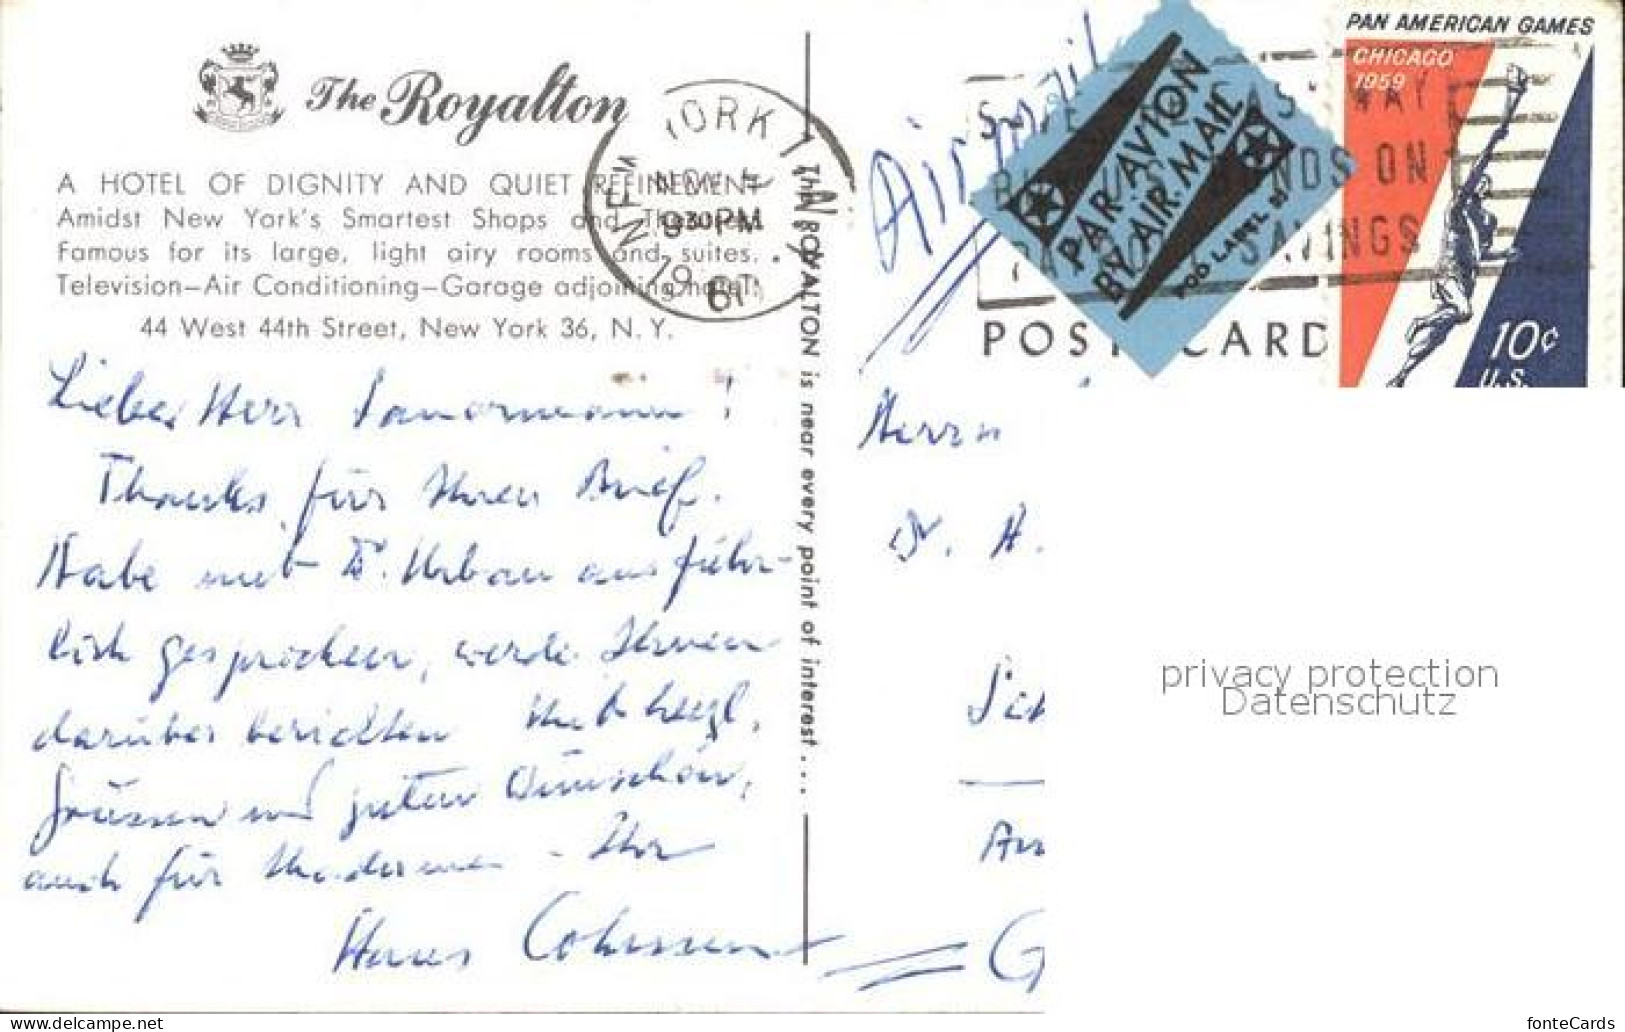 The Royalton
A HOTEL OF DIGNITY AND QUIET REFINEMENT
Amidst New York's Smartest Shops and Theatres.
Famous for its large, light airy rooms and suites.
Television—Air Conditioning—Garage adjoining hotel.
44 West 44th Street, New York 36, N. Y.
NEW YORK
NOV
9 30 PM
1961
The ROYALTON is near every point of interest...
Air mail
PAR AVION
BY AIR MAIL
POD LABEL
BONDS ON
SAVINGS
POST CARD
PAN AMERICAN GAMES
CHICAGO
1959
10¢
U.S.
Lieber Herr
Thanks für Ihren Brief.
Habe mit Dr. Urban ausführ-
lich gesprochen, werde Ihnen
darüber berichten. Mit herzl.
Grüssen und guten Wünschen,
auch für - Ihr
Hans
Herrn
Dr. H.
privacy protection
Datenschutz
www.delcampe.net
fonteCards